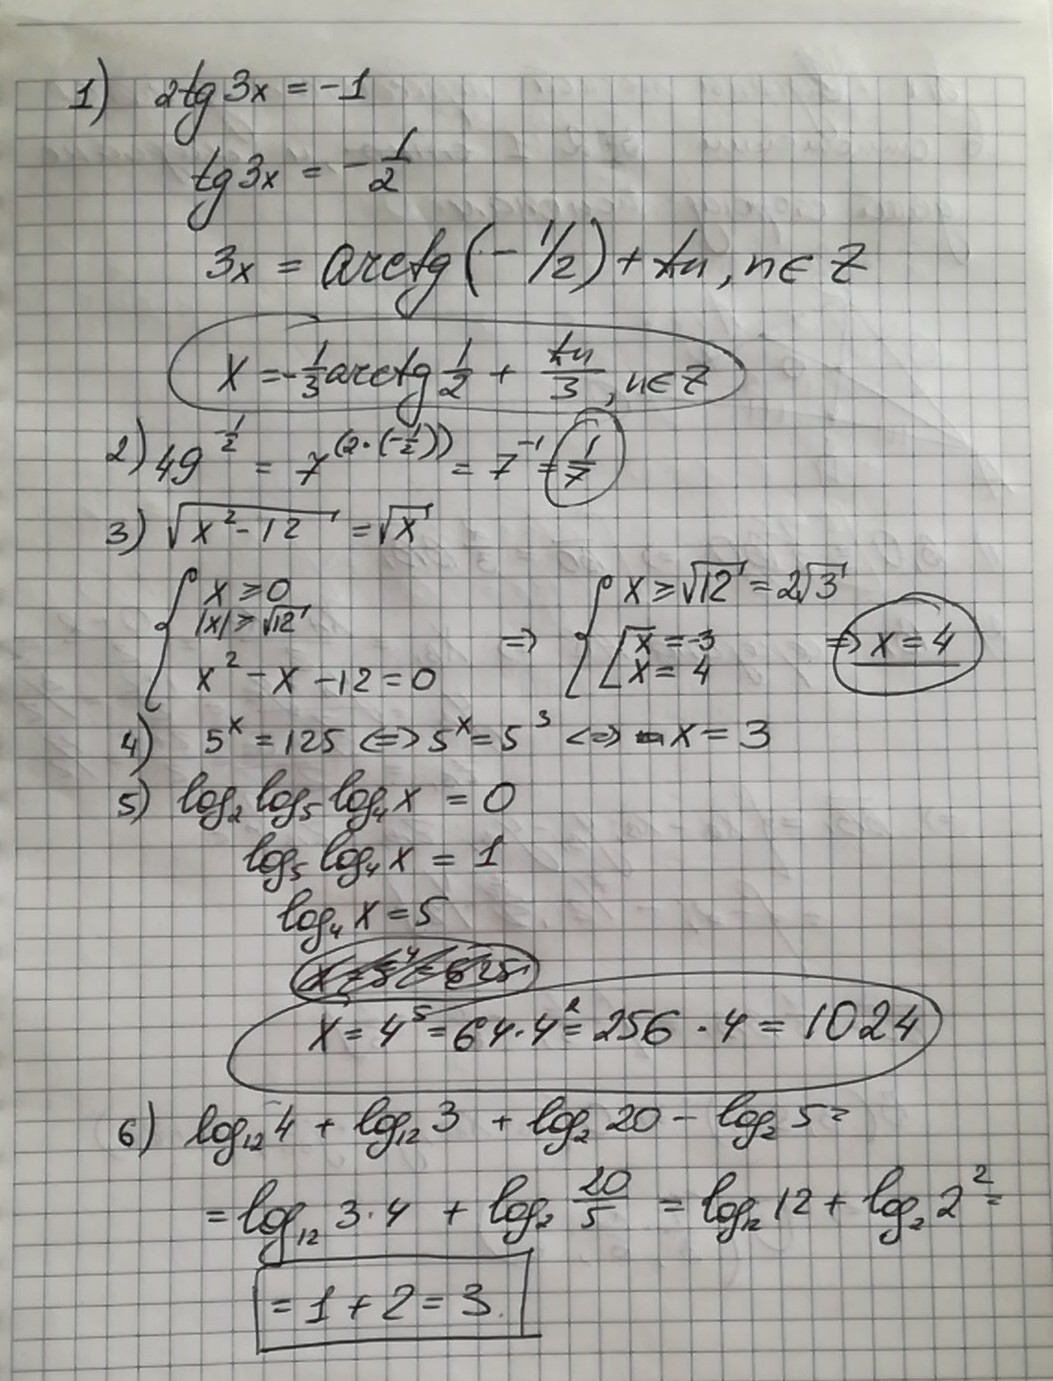 1) 2tg3x = -1
tg3x = -1/2
3x = arctg(-1/2) + πn, n∈Z
x = -1/3 arctg 1/2 + πn/3, n∈Z
2) 49^(-1/2) = 7^(2·(-1/2)) = 7^(-1) = 1/7
3) √(x²-12) = √x
{ x ≥ 0
|x| ≥ √12
x² - x - 12 = 0
=> { x ≥ √12 = 2√3
[ x = -3
x = 4
=> x = 4
4) 5^x = 125 <=> 5^x = 5^3 <=> x = 3
5) log₂ log₅ log₄ x = 0
log₅ log₄ x = 1
log₄ x = 5
x = 5⁴ = 625
x = 4⁵ = 64·4² = 256·4 = 1024
6) log₁₂ 4 + log₁₂ 3 + log₂ 20 - log₂ 5 =
= log₁₂ 3·4 + log₂ 20/5 = log₁₂ 12 + log₂ 2² =
= 1 + 2 = 3.